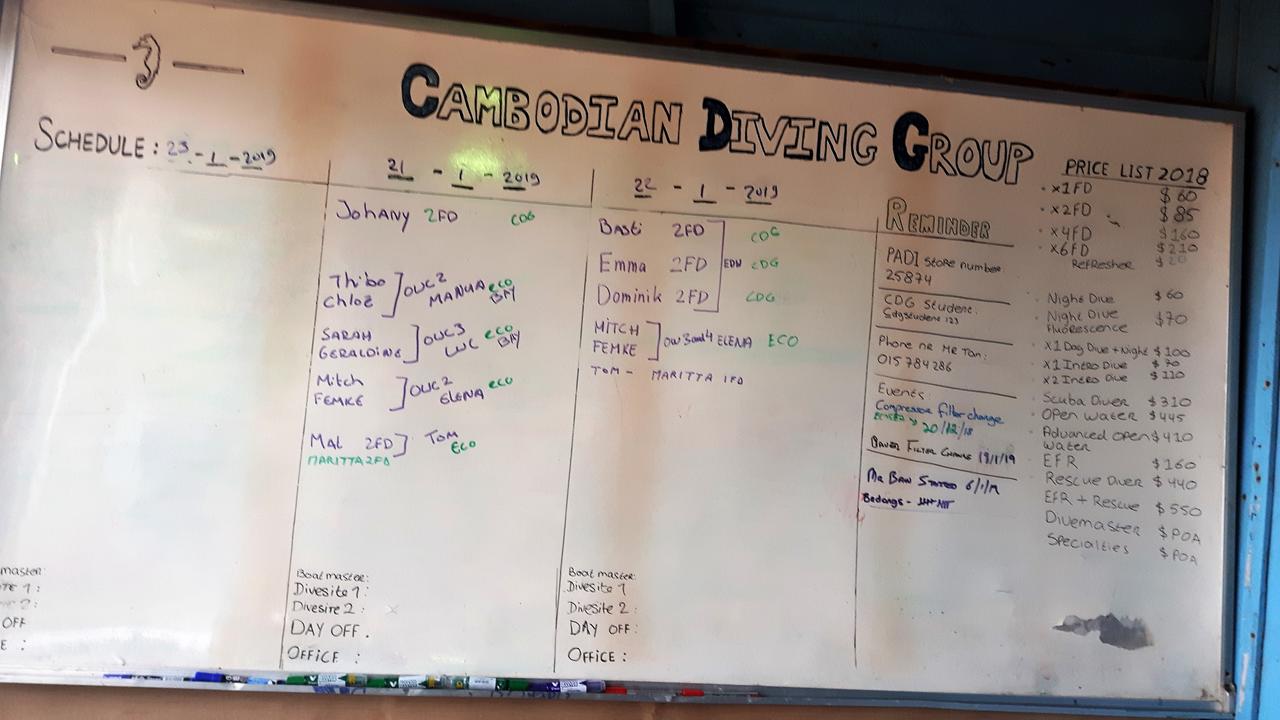 CAMBODIAN DIVING GROUP
SCHEDULE: 23-1-2019
21 - 1 - 2019
Johany 2FD CDG
Thibo
Chloe
OWC2
MANUA eco
BM
SARAH
GERALDINE
OWC3
eco
Mitch
FEMKE
OWC2
ELENA eco
Mal 2FD TOM
ECO
MARITTA 2FD
Boat master:
Divesite 1:
Divesire 2:
DAY OFF.
OFFICE:
22 - 1 - 2019
Basti 2FD CDG
Emma 2FD EDW CDG
Dominik 2FD CDG
MITCH
FEMKE
OW 3and4 ELENA ECO
TOM - MARITTA 1FD
Boat master:
Divesite 1
Divesite 2:
DAY OFF:
OFFICE:
master:
OFF
E:
REMINDER
PADI Store number
25874
CDG Student:
Phone nr Mr Tan:
015 784 286
Events:
Compressor filter change
20/12/18
BAUER FILTER CHANGE 19/1/19
Bedongs -
PRICE LIST 2018
x1FD $60
x2FD $85
x4FD $160
x6FD $210
Refresher $20
Night Dive $60
Night Dive $70
fluorescence
x1 Day Dive + Night $100
x1 Intro Dive $70
x2 Intro Dive $110
Scuba Diver $310
Open Water $445
Advanced Open $410
Water
EFR $160
Rescue Diver $440
EFR + Rescue $550
Divemaster $POA
Specialties $POA